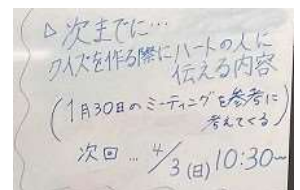 ▷次までに…
クイズを作る際にハートの人に
伝える内容
(1月30日のミーティングを参考に
考えてくる)
次回… 4/3(日)10:30~